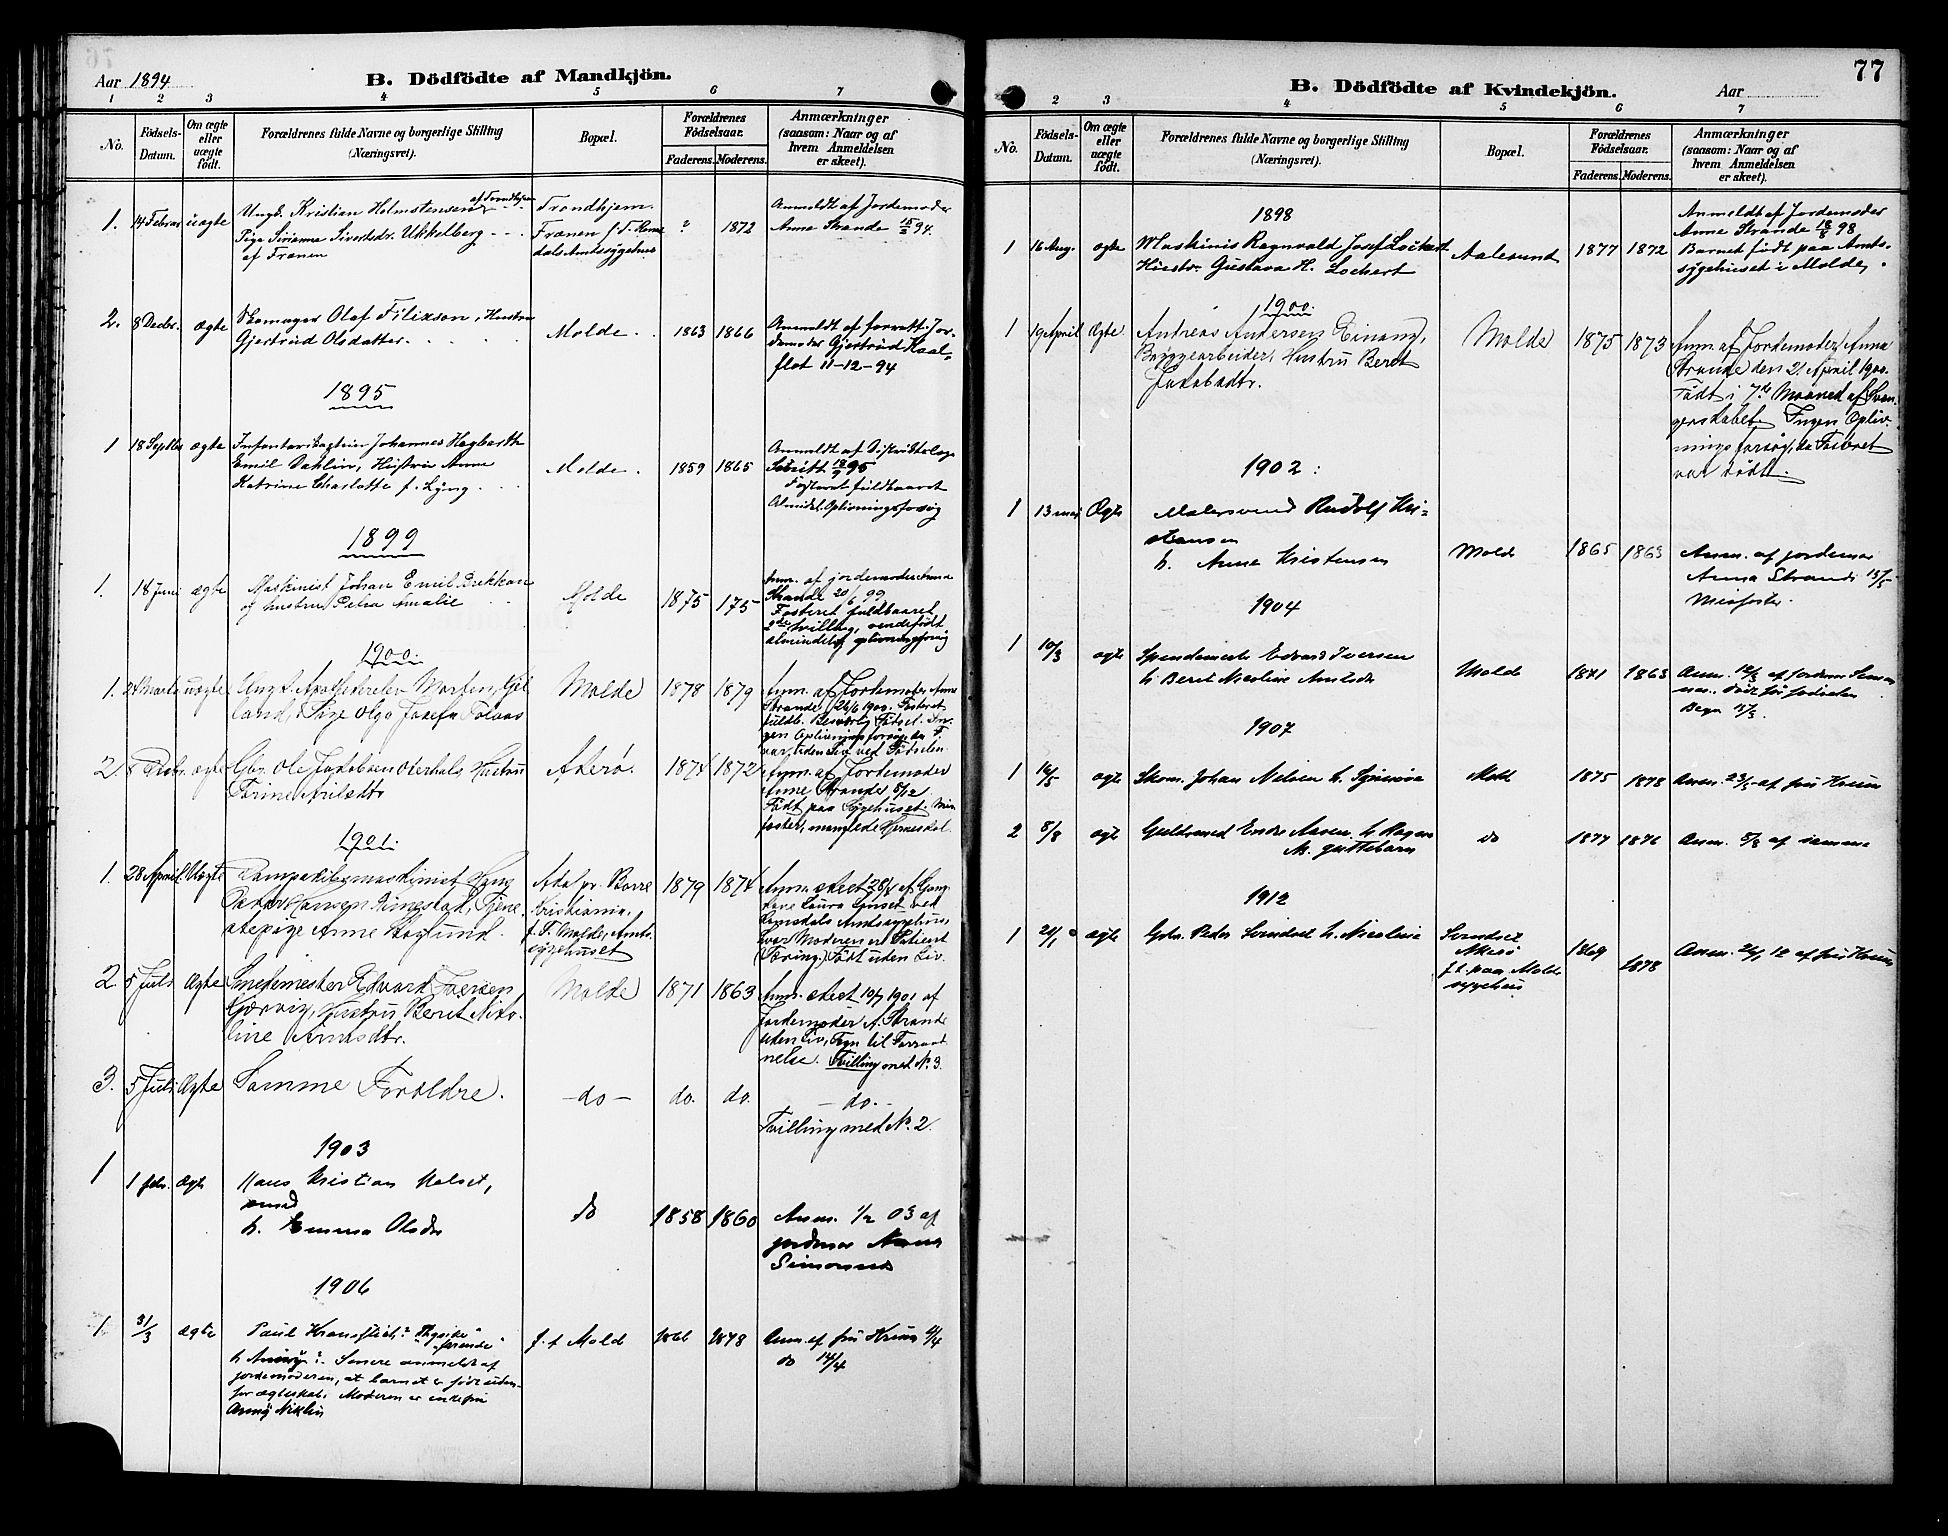 Aar 1894
B. Dödfödte af Mandkjön.
1 2 3 4 5 6 7
No.
Födsels-Datum.
Om ægte eller uægte født.
Forældrenes fulde Navne og borgerlige Stilling (Næringsvei).
Bopæl.
Forældrenes Födselsaar.
Faderens. Moderens.
Anmærkninger (saasom: Naar og af hvem Anmeldelsen er skeet).
1. 14 Febru uægte Ungk. Kristian Holmstensen af Trondhjem Trondhjem. ? 1872 Anmeldt af Jordemoder
Pige Sivertsdr. Ukkelberg Frænen f. T. Roms Anna Strande 15/2 94.
af Frænen dals Amtssygehus
2. 8 Decbr. ægte Skomager Olaf Filixson, Hustru Molde. 1863 1866 Anmeldt af Jor-
Gjertrud Olsdatter. demoder Gjertrud Kaal-
flot 11-12-94
1895
1 18 Septbr ægte Johannes Hagbarth Molde. 1859 1865 Anmeldt af Distriktslæge
Emil Dahlin, Hustru Anne 95
Katrine Charlotte f. Lyng. Fosteret fuldbaaret
Almindel. Oplivningsforsøg
1899
1. 18 Juni ægte Maskinist Johan Emil Molde 1875 175 Anm. af jordemoder Anna
og hustru Petra Amalie Strande 20/6 99
Fosteret fuldbaaret,
2den tvilling, vendefødt
almindelig oplivningsforsøg
1900.
1. 24 Marts uægte Ungk. Apothekerelev Morten Molde 1878 1879 Anm. af Jordemoder Anna
land, Pige Olga Josefa Strande 1900. Fosteret
fuldb. Besværlig Fødsel. In-
gen Oplivningsforsøg da F.
var uden Liv ved Fødselen.
2. 8 Decbr. ægte Gbr. Ole Jakobsen Hustru Akerø. 1874 1872 Anm. af Jordemoder
Anne Strande, 8/12
Født paa Sygehuset. Mis-
foster, manglede Hjerneskal.
1901.
1. 28 April. Uægte Hans Adal pr. Borre 1879 1874 Anm. skeet 28/4 af
Peter Hansen Ringestad, Tjene- Kristiania. Laura ved
stepige Anne Høglund. f. T. Molde, Amts- Romsdals Amtssygehus,
sygehuset hvor Moderen er Patient
(Tæring.) Født uden Liv.
2 5 Juli Ægte Smedemester Edvard Iversen Molde 1871 1863 Anm. skeet 10/7 1901 af
Hustru Beret Niko- Jordemoder A. Strande
line Arnesdtr. uden Liv, Tegn til Forraad-
nelse. Tvilling med N. 3.
3. 5 Juli Ægte Samme Forældre. -do- do. do. -do.-
Tvilling med N. 2.
1903
1 1 febr. Ægte Hans Kristian do 1858 1860 Anm. 1/2 03 af
h. Emma Olsdtr jordemor
Simonsen
1906
1. 31/3 ægte Paul f. t. Molde 1878 Anm. af fru Krum 4/4
h. Senere anmeldt af do 14/4
jordemoderen, at barnet er født uden-
for ægteskab. Moderen er enkefru
77
B. Dödfödte af Kvindekjön.
Aar
2 3 4 5 6 7
No.
Födsels-Datum.
Om ægte eller uægte födt.
Forældrenes fulde Navne og borgerlige Stilling (Næringsvei).
Bopæl.
Forældrenes Födselsaar.
Faderens. Moderens.
Anmærkninger (saasom: Naar og af hvem Anmeldelsen er skeet).
1898
1 16 Aug. ægte Maskinis Ragnvald Josef Lockert Aalesund 1877 1872 Anmeldt af Jordemoder
Hustr. Gustava H. Lockert Anne Strande 18/8 98
Barnet født paa Amts-
sygehuset i Molde.
1900.
1 19 April Ægte Andreas Andersen Einang, Molde 1875 1873 Anm. af Jordemoder Anna
Bryggearbeider, Hustru Beret Strande den 21 April 1900.
Jakobsdtr. Født i 7de Maaned af Svan-
gerskabet. Ingen Opliv-
ningsforsøg, da Fosteret
var dødt.
1902:
1 13 mai Ægte Malersvend Rudolf Kri-
stensen
h. Anne Kristensen Molde 1865 1863 Anm. af jordemor
Anna Strande 15/5
Misfoster.
1904
1 10/3 ægte Edvard Iversen Molde 1871 1863 Anm. af jordem.
h. Beret Nicoline Død før fødselen
Begr.
1907
1 ægte Skom. Johan Nilsen h. Molde 1875 1878 Anm. 23/5 af fru Krum
2 8/8 ægte Guldsmed Endre Aasen. h. Ragna do 1877 1876 Anm. 8/8 af samme
M. guttebarn
1912
1 24/1 ægte Peder Sørndset h. Nicoline 1869 1878 Anm. 26/1 12 af fru Krum
Akerø
f. t. paa Molde
sygehus